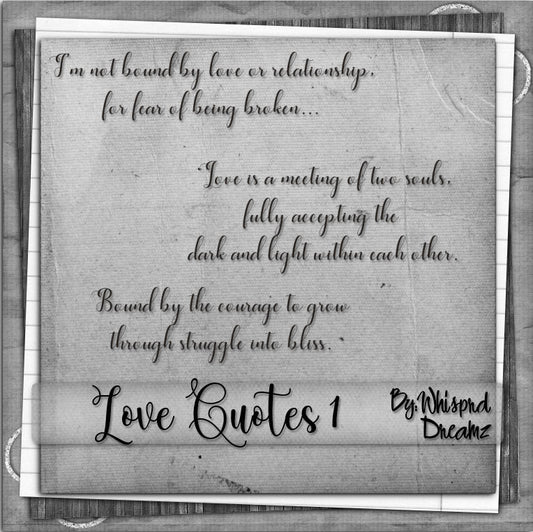 I'm not bound by love or relationship,
for fear of being broken...
"Love is a meeting of two souls,
fully accepting the
dark and light within each other.
Bound by the courage to grow
through struggle into bliss."
Love Quotes 1
By:Whisprd
Dreamz